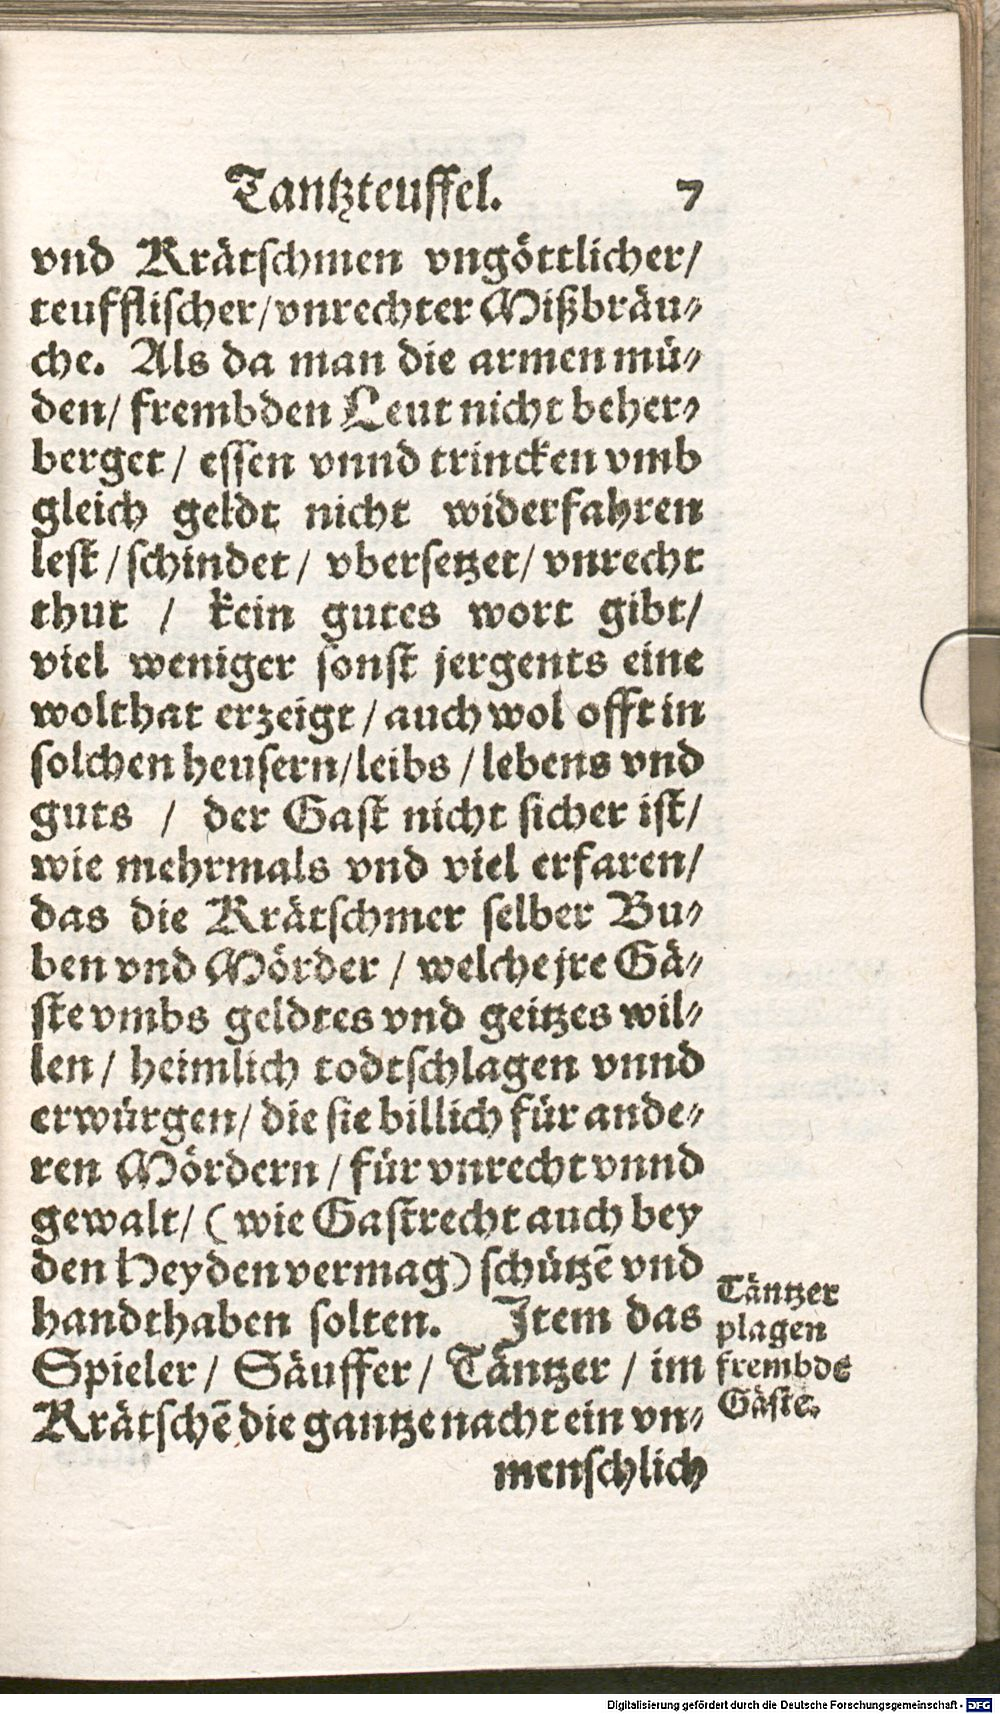 Tantzteuffel. 7
vnd Krätschmen vngöttlicher/
teufflischer/vnrechter Mißbräu⸗
che. Als da man die armen mü⸗
den/ frembden Leut nicht beher⸗
berget / essen vnnd trincken vmb
gleich geldt nicht widerfahren
lest /schindet / vbersetzet/ vnrecht
thut / kein gutes wort gibt/
viel weniger sonst jergents eine
wolthat erzeigt / auch wol offt in
solchen heusern/leibs / lebens vnd
guts / der Gast nicht sicher ist/
wie mehrmals vnd viel erfaren/
das die Krätschmer selber Bu⸗
ben vnd Mörder / welche jre Gä⸗
ste vmbs geldtes vnd geitzes wil⸗
len / heimlich todtschlagen vnnd
erwürgen/ die sie billich für ande⸗
ren Mördern / für vnrecht vnnd
gewalt/ ( wie Gastrecht auch bey
den Heyden vermag) schützē vnd
handthaben solten. Item das
Spieler/ Säuffer/ Täntzer / im
Krätschē die gantze nacht ein vn⸗
menschlich
Täntzer
plagen
frembde
Gäste.
Digitalisierung gefördert durch die Deutsche Forschungsgemeinschaft - DFG